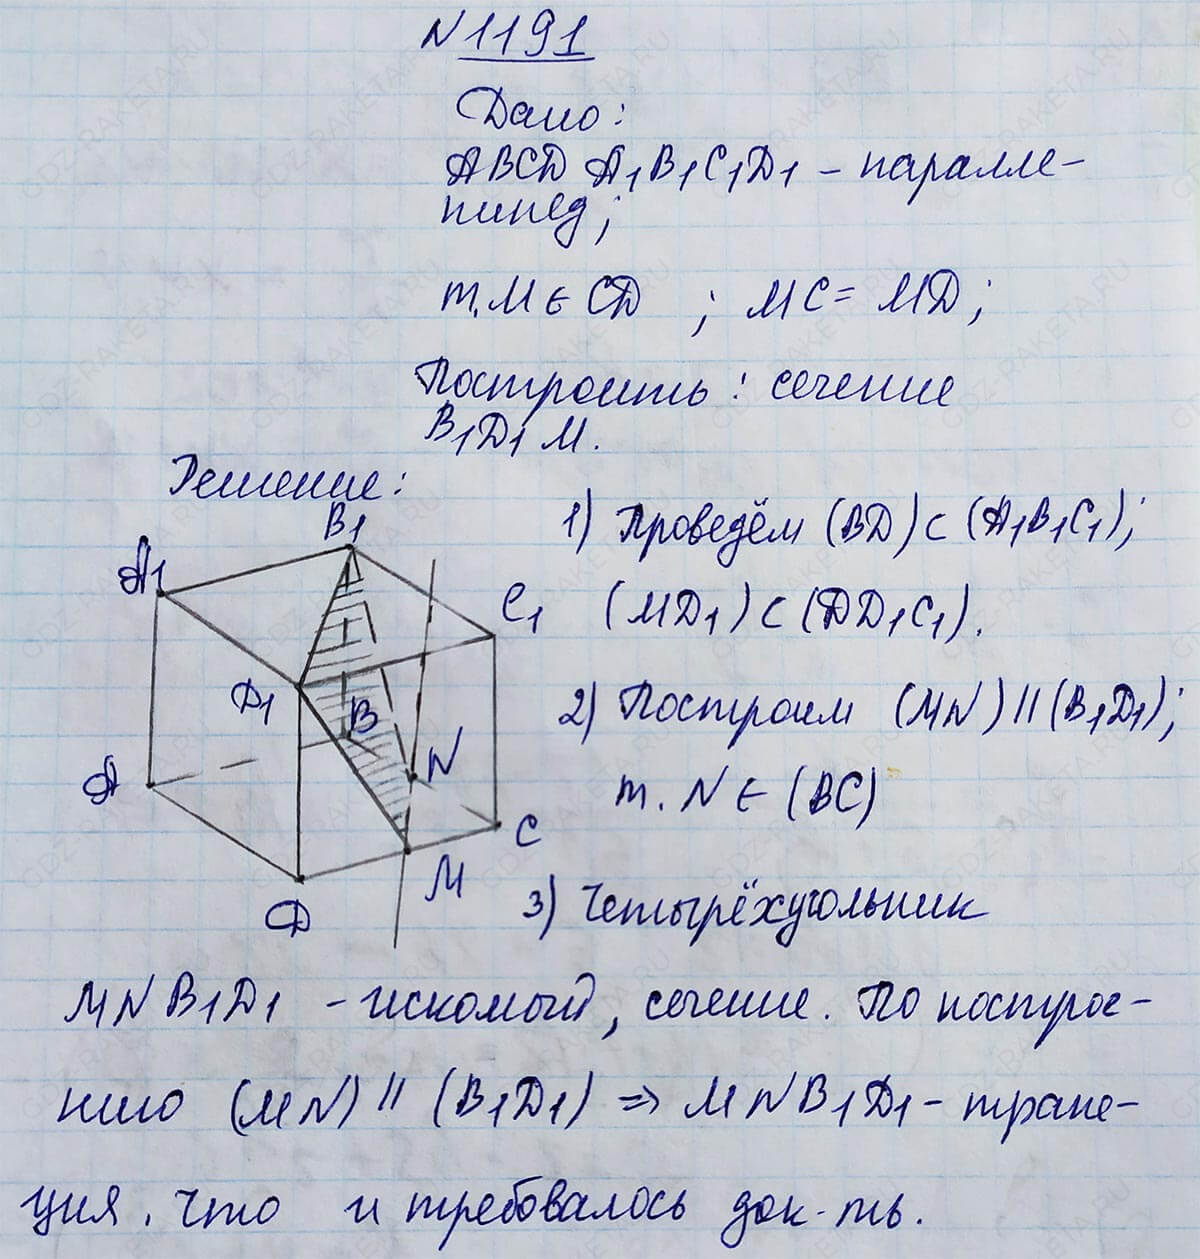 N1191
Дано:
ABCD A1B1C1D1 – паралле-
пипед;
т.M ∈ CD ; MC = MD;
Построить: сечение
B1D1M.
Решение:
1) Проведём (BD) ⊂ (A1B1C1);
(MD1) ⊂ (DD1C1).
2) Построим (MN) || (B1D1);
т. N ∈ (BC)
3) Четырёхугольник
MNB1D1 – искомый, сечение. По построе-
нию (MN) || (B1D1) ⇒ MNB1D1 – трапе-
ция. Что и требовалось док-ть.
B1
A1
C1
D1
B
N
A
C
M
D
GDZ-RAKETA.RU